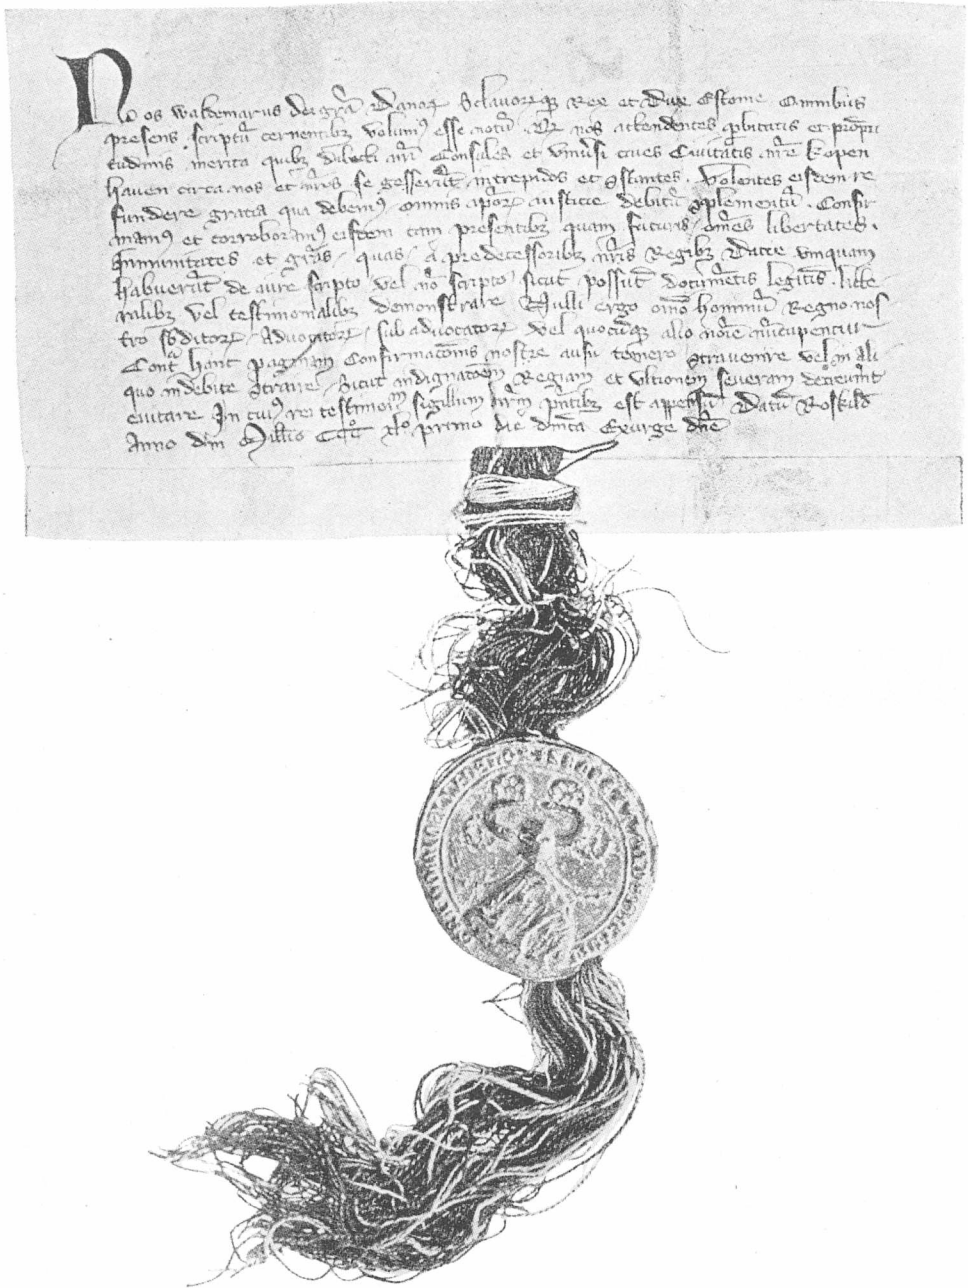 Nos waldemarus dei gr̄a Danoꝝ Sclauorꝝqꝫ Rex et Dux Estonie Omnibus
presens scriptū cernentibꝫ Volumꝰ esse notū. nos attendentes ꝓbitatis et promti
tudinis merita quibꝫ dilecti nr̄i Consules et vniu̾si ciues Ciuitatis nr̄e kopen
hauen circa nos et nr̄os se gesserūt intrepidos et ꝯstantes. Volentes eisdem re
fundere gracia qua debemꝰ omnis iusticie debitū ꝯplementū. Confir
mamꝰ et corroboramꝰ eisdem tam presentibꝫ quam futuris om̄es libertates.
Inmunitates et gr̄as, quas, a predecessoribꝫ nr̄is Regibꝫ Dacie vmquam
habuerūt de iure scripto vel nō scripto sicut possūt documētis legitīs. litte
ralibꝫ vel testimonialibꝫ demonstrare Nulli ergo om̄o hominū Regno nos
tro sb̄ditorꝝ, Aduocatorꝝ, sub aduocatorꝝ vel quocūqꝫ alio noīe nūcupentur
Cont͛ hanc paginam Confirmac̄onis nostre ausu temero ꝯtrauenire vel in ali
quo indebite ꝯtraire, sicut indignac̄oem Regiam et vltionem seueram decreuerint
euitare In cuiꝰ rei testimoīm sigillum nr̄m pn̄tibꝫ est appensū Datū Roskild
Anno dn̄i Millio CCCͦ xlͦ primo die dn̄ica Exurge dn̄e